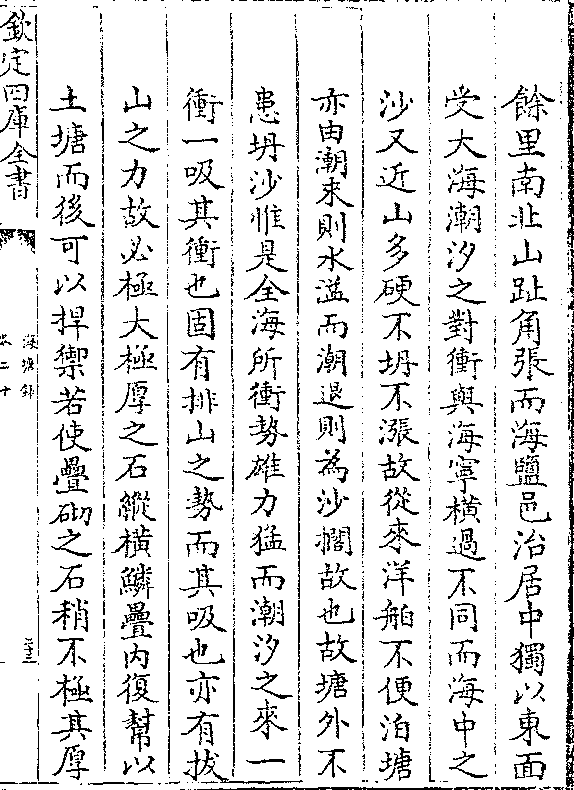 餘里南北山趾角張而海鹽邑治居中獨以東面
受大海潮汐之對衝與海寧橫過不同而海中之
沙又近山多硬不坍不漲故從來洋舶不便泊塘
亦由潮來則水溢而潮退則為沙擱故也故塘外不
患坍沙惟是全海所衝勢雄力猛而潮汐之來一
衝一吸其衝也固有排山之勢而其吸也亦有拔
山之力故必極大極厚之石縱橫鱗疊内復幫以
土塘而後可以捍禦若使疊砌之石稍不極其厚
欽定四庫全書
海塘錄
卷二十
二十三